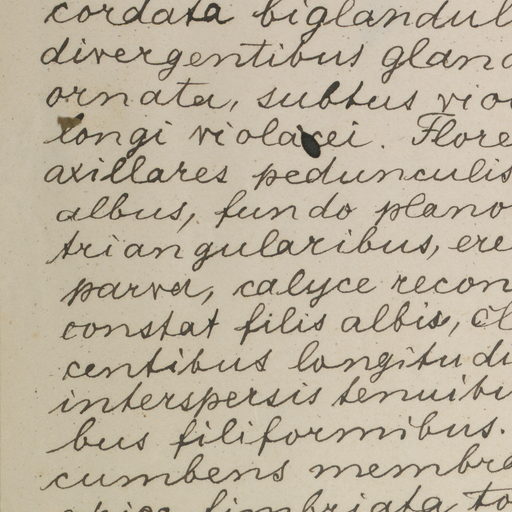 cordata biglandul
divergentibus gland
ornata, subtus vio
longi violacei. Flore
axillares pedunculis
albus, fundo plano
triangularibus, ere
parva, calyce recon
constat filis albis,
centibus longitudi
interspersis tenuibu
bus filiformibus.
cumbens membra
apice fimbriata to